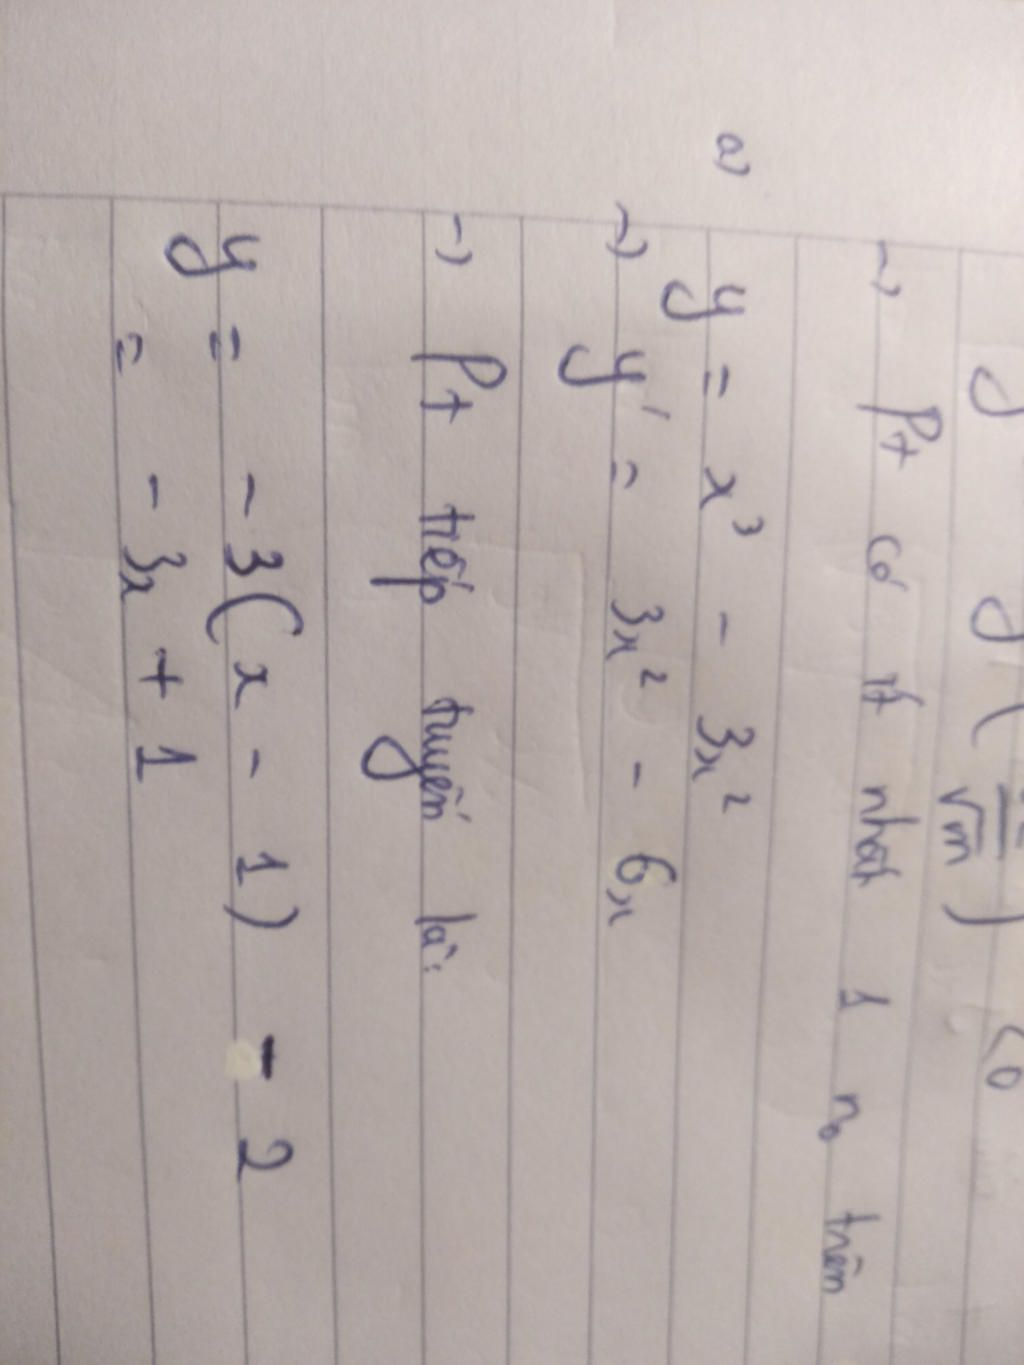 y y( √m ) <0
-> Pt có ít nhất 1 no trên
a) y = x³ - 3x²
-> y' = 3x² - 6x
-> Pt tiếp tuyến là:
y = -3(x - 1) - 2
= -3x + 1